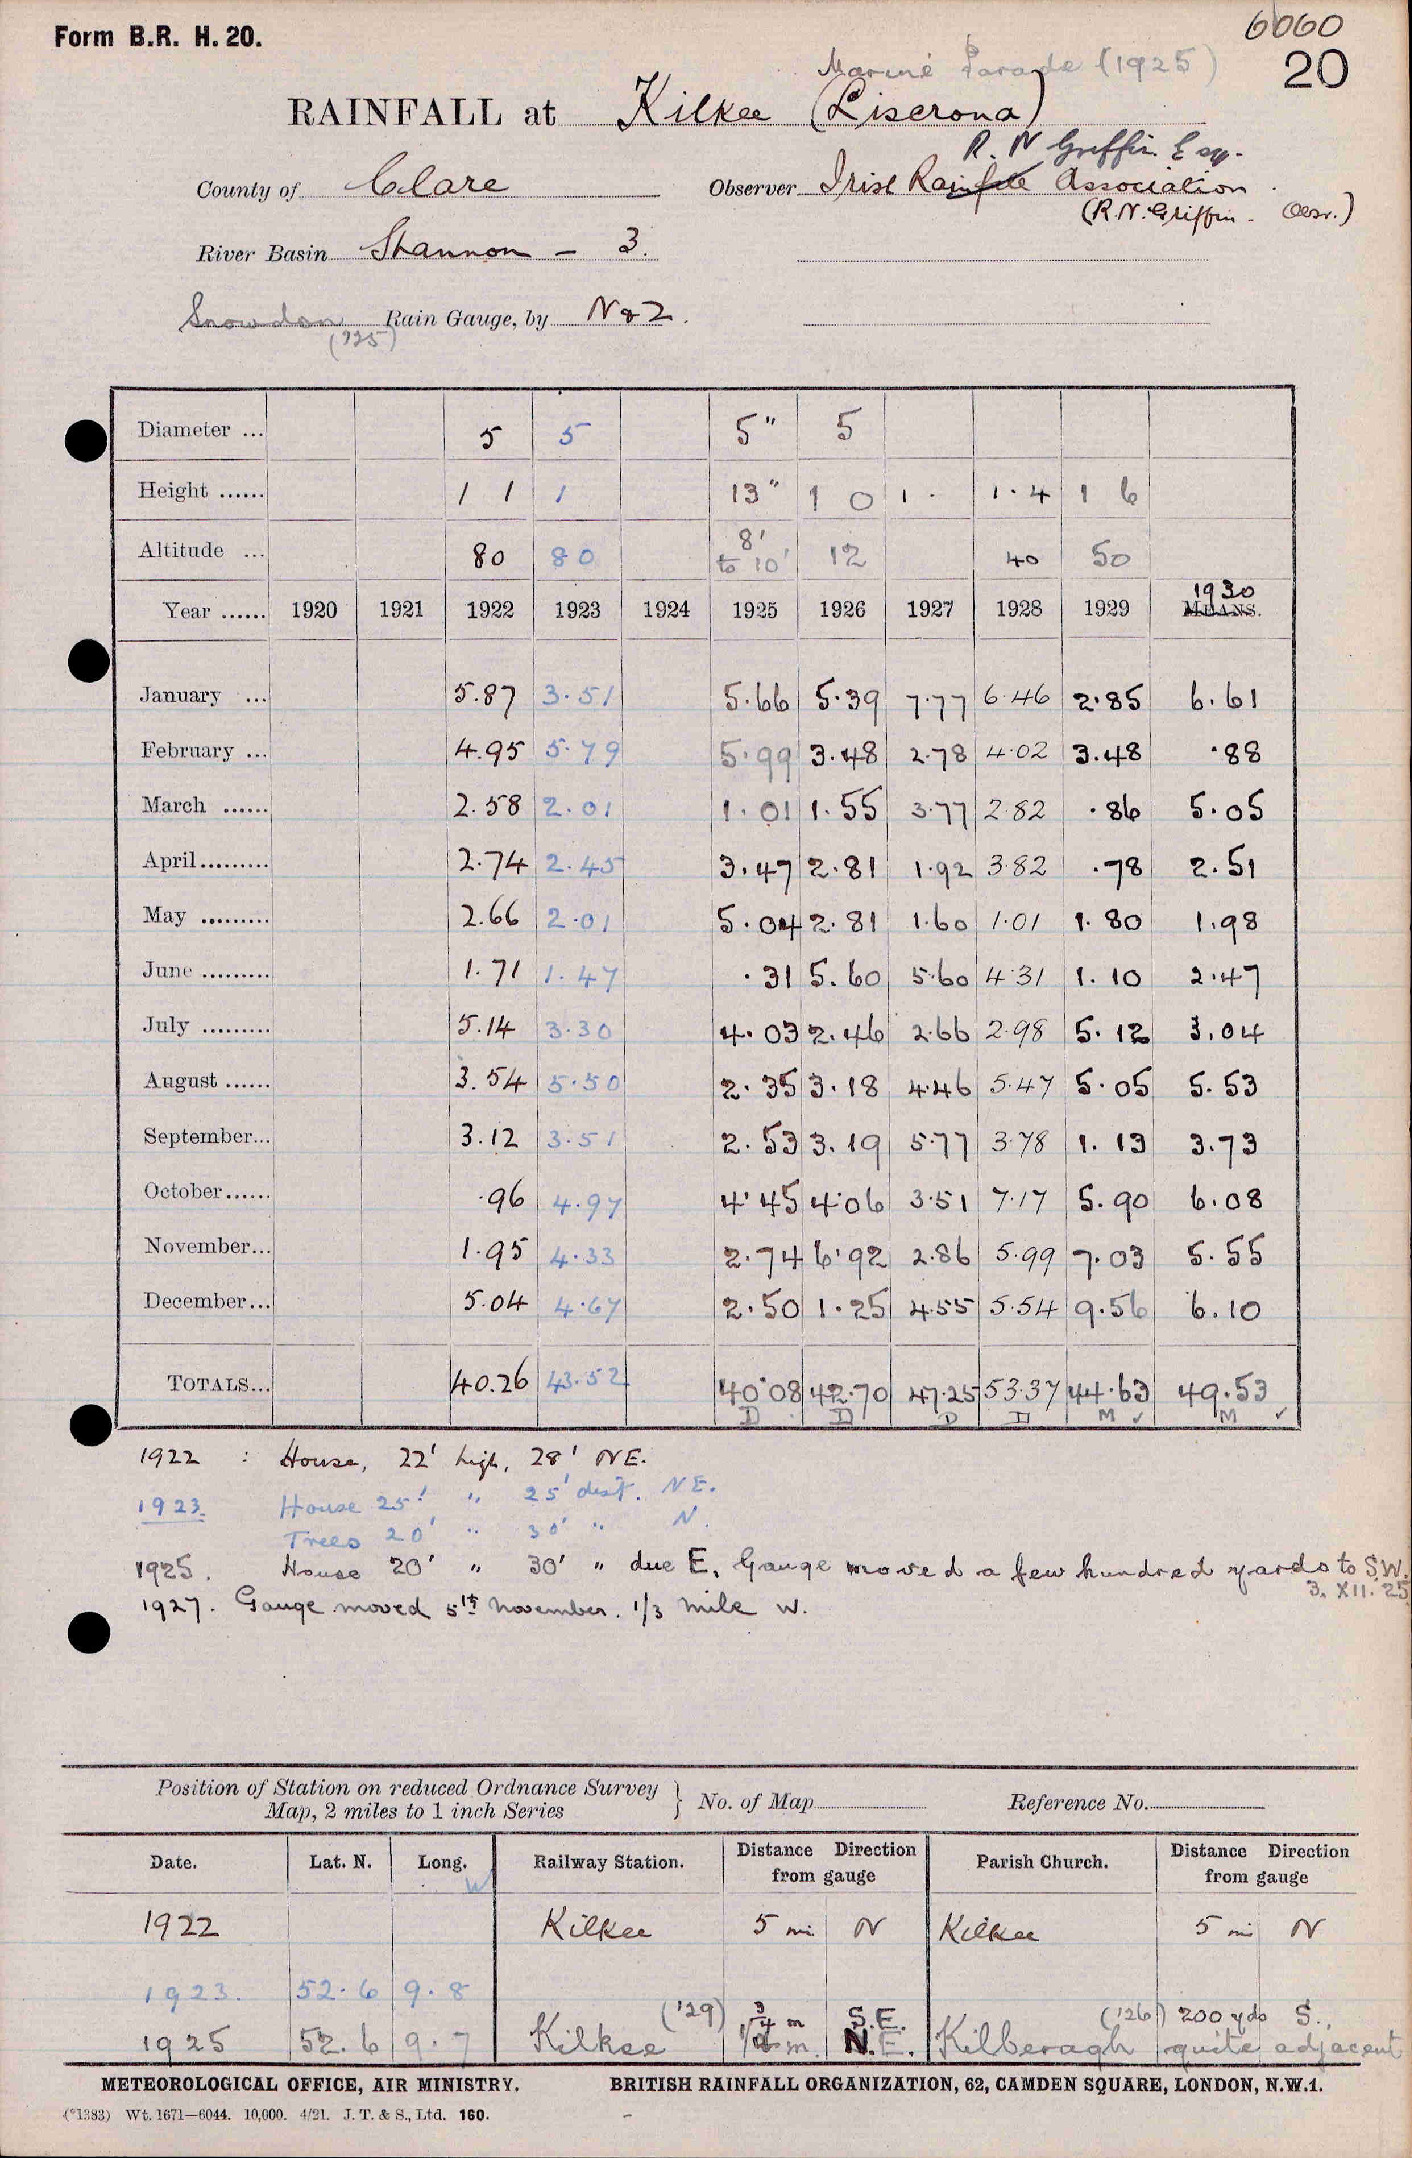 Form B.R. H. 20.
6060
20
Marine Parade (1925)
RAINFALL at Kilkee (Liscrona)
R. N Griffin Esq.
County of Clare Observer Irish Rainfall Association
(R.N. Griffin. Obsr.)
River Basin Shannon – 3.
Snowdon Rain Gauge, by N & Z.
('25)
Diameter ... 5 5 5" 5
Height ...... 1 1 1 13" 1 0 1 · 1·4 1 6
Altitude ... 80 80 8' to 10' 12 40 50
Year ...... 1920 1921 1922 1923 1924 1925 1926 1927 1928 1929 1930 MEANS.
January ... 5.87 3.51 5.66 5.39 7.77 6.46 2.85 6.61
February ... 4.95 5.79 5.99 3.48 2.78 4.02 3.48 .88
March ...... 2.58 2.01 1.01 1.55 3.77 2.82 .86 5.05
April......... 2.74 2.45 3.47 2.81 1.92 3.82 .78 2.51
May ......... 2.66 2.01 5.04 2.81 1.60 1.01 1.80 1.98
June ......... 1.71 1.47 .31 5.60 5.60 4.31 1.10 2.47
July ......... 5.14 3.30 4.03 2.46 2.66 2.98 5.12 3.04
August ...... 3.54 5.50 2.35 3.18 4.46 5.47 5.05 5.53
September... 3.12 3.51 2.53 3.19 5.77 3.78 1.13 3.73
October...... .96 4.97 4.45 4.06 3.51 7.17 5.90 6.08
November... 1.95 4.33 2.74 6.92 2.86 5.99 7.03 5.55
December... 5.04 4.67 2.50 1.25 4.55 5.54 9.56 6.10
TOTALS... 40.26 43.52 40.08 42.70 47.25 53.37 44.63 49.53
D D D D M ✓ M ✓
1922 : House, 22' high, 28' NE.
1923. House 25' " 25' dist. NE.
Trees 20' " 30' " N.
1925. House 20' " 30' " due E. Gauge moved a few hundred yards to S.W.
3. XII. 25
1927. Gauge moved 5th November. 1/3 mile W.
Position of Station on reduced Ordnance Survey Map, 2 miles to 1 inch Series } No. of Map Reference No.
Date. Lat. N. Long. W Railway Station. Distance Direction from gauge Parish Church. Distance Direction from gauge
1922 Kilkee 5 mi N Kilkee 5 mi N
1923. 52.6 9.8
('29) 3/4 m S.E. ('26) 200 yds S.,
1925 52.6 9.7 Kilkee m. N.E. Kilberagh quite adjacent
METEOROLOGICAL OFFICE, AIR MINISTRY. BRITISH RAINFALL ORGANIZATION, 62, CAMDEN SQUARE, LONDON, N.W.1.
(*1383) Wt. 1671—6044. 10,000. 4/21. J. T. & S., Ltd. 160.